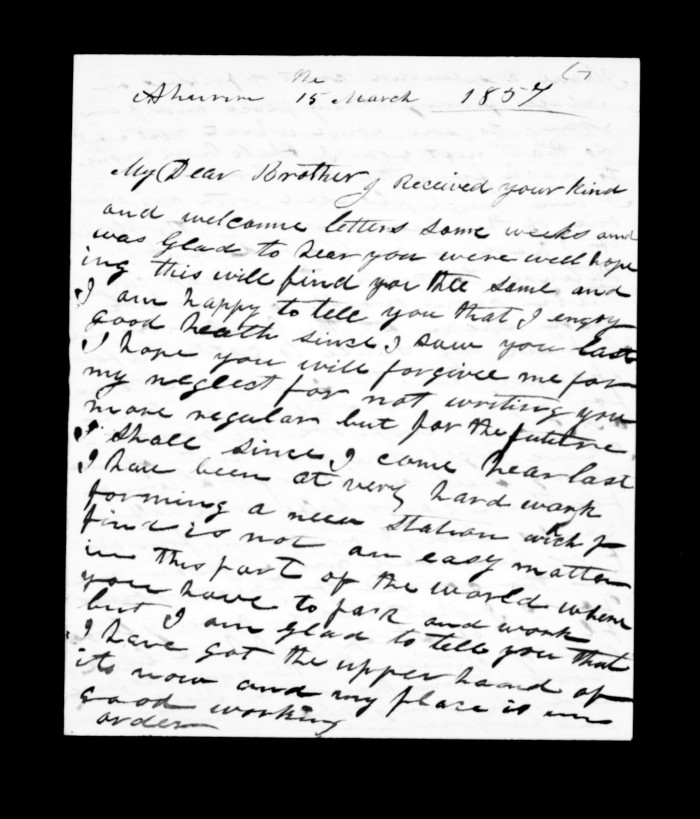 Ahuriri the 15 March 1857
My Dear Brother I Received your kind
and welcome letters some weeks and
was Glad to hear you were well hope
ing this will find you the same and
I am happy to tell you that I engoy
good heath since I saw you last
I hope you will forgive me for
my neglect for not writing you
more regular but for the future
I shall since I came hear last
I have been at very hard work
forming a new Station wich I
find is not an easy matter
in this part of the world where
you have to pack and work
but I am glad to tell you that
I have got the upper hand of
its now and my place is in
good working
order